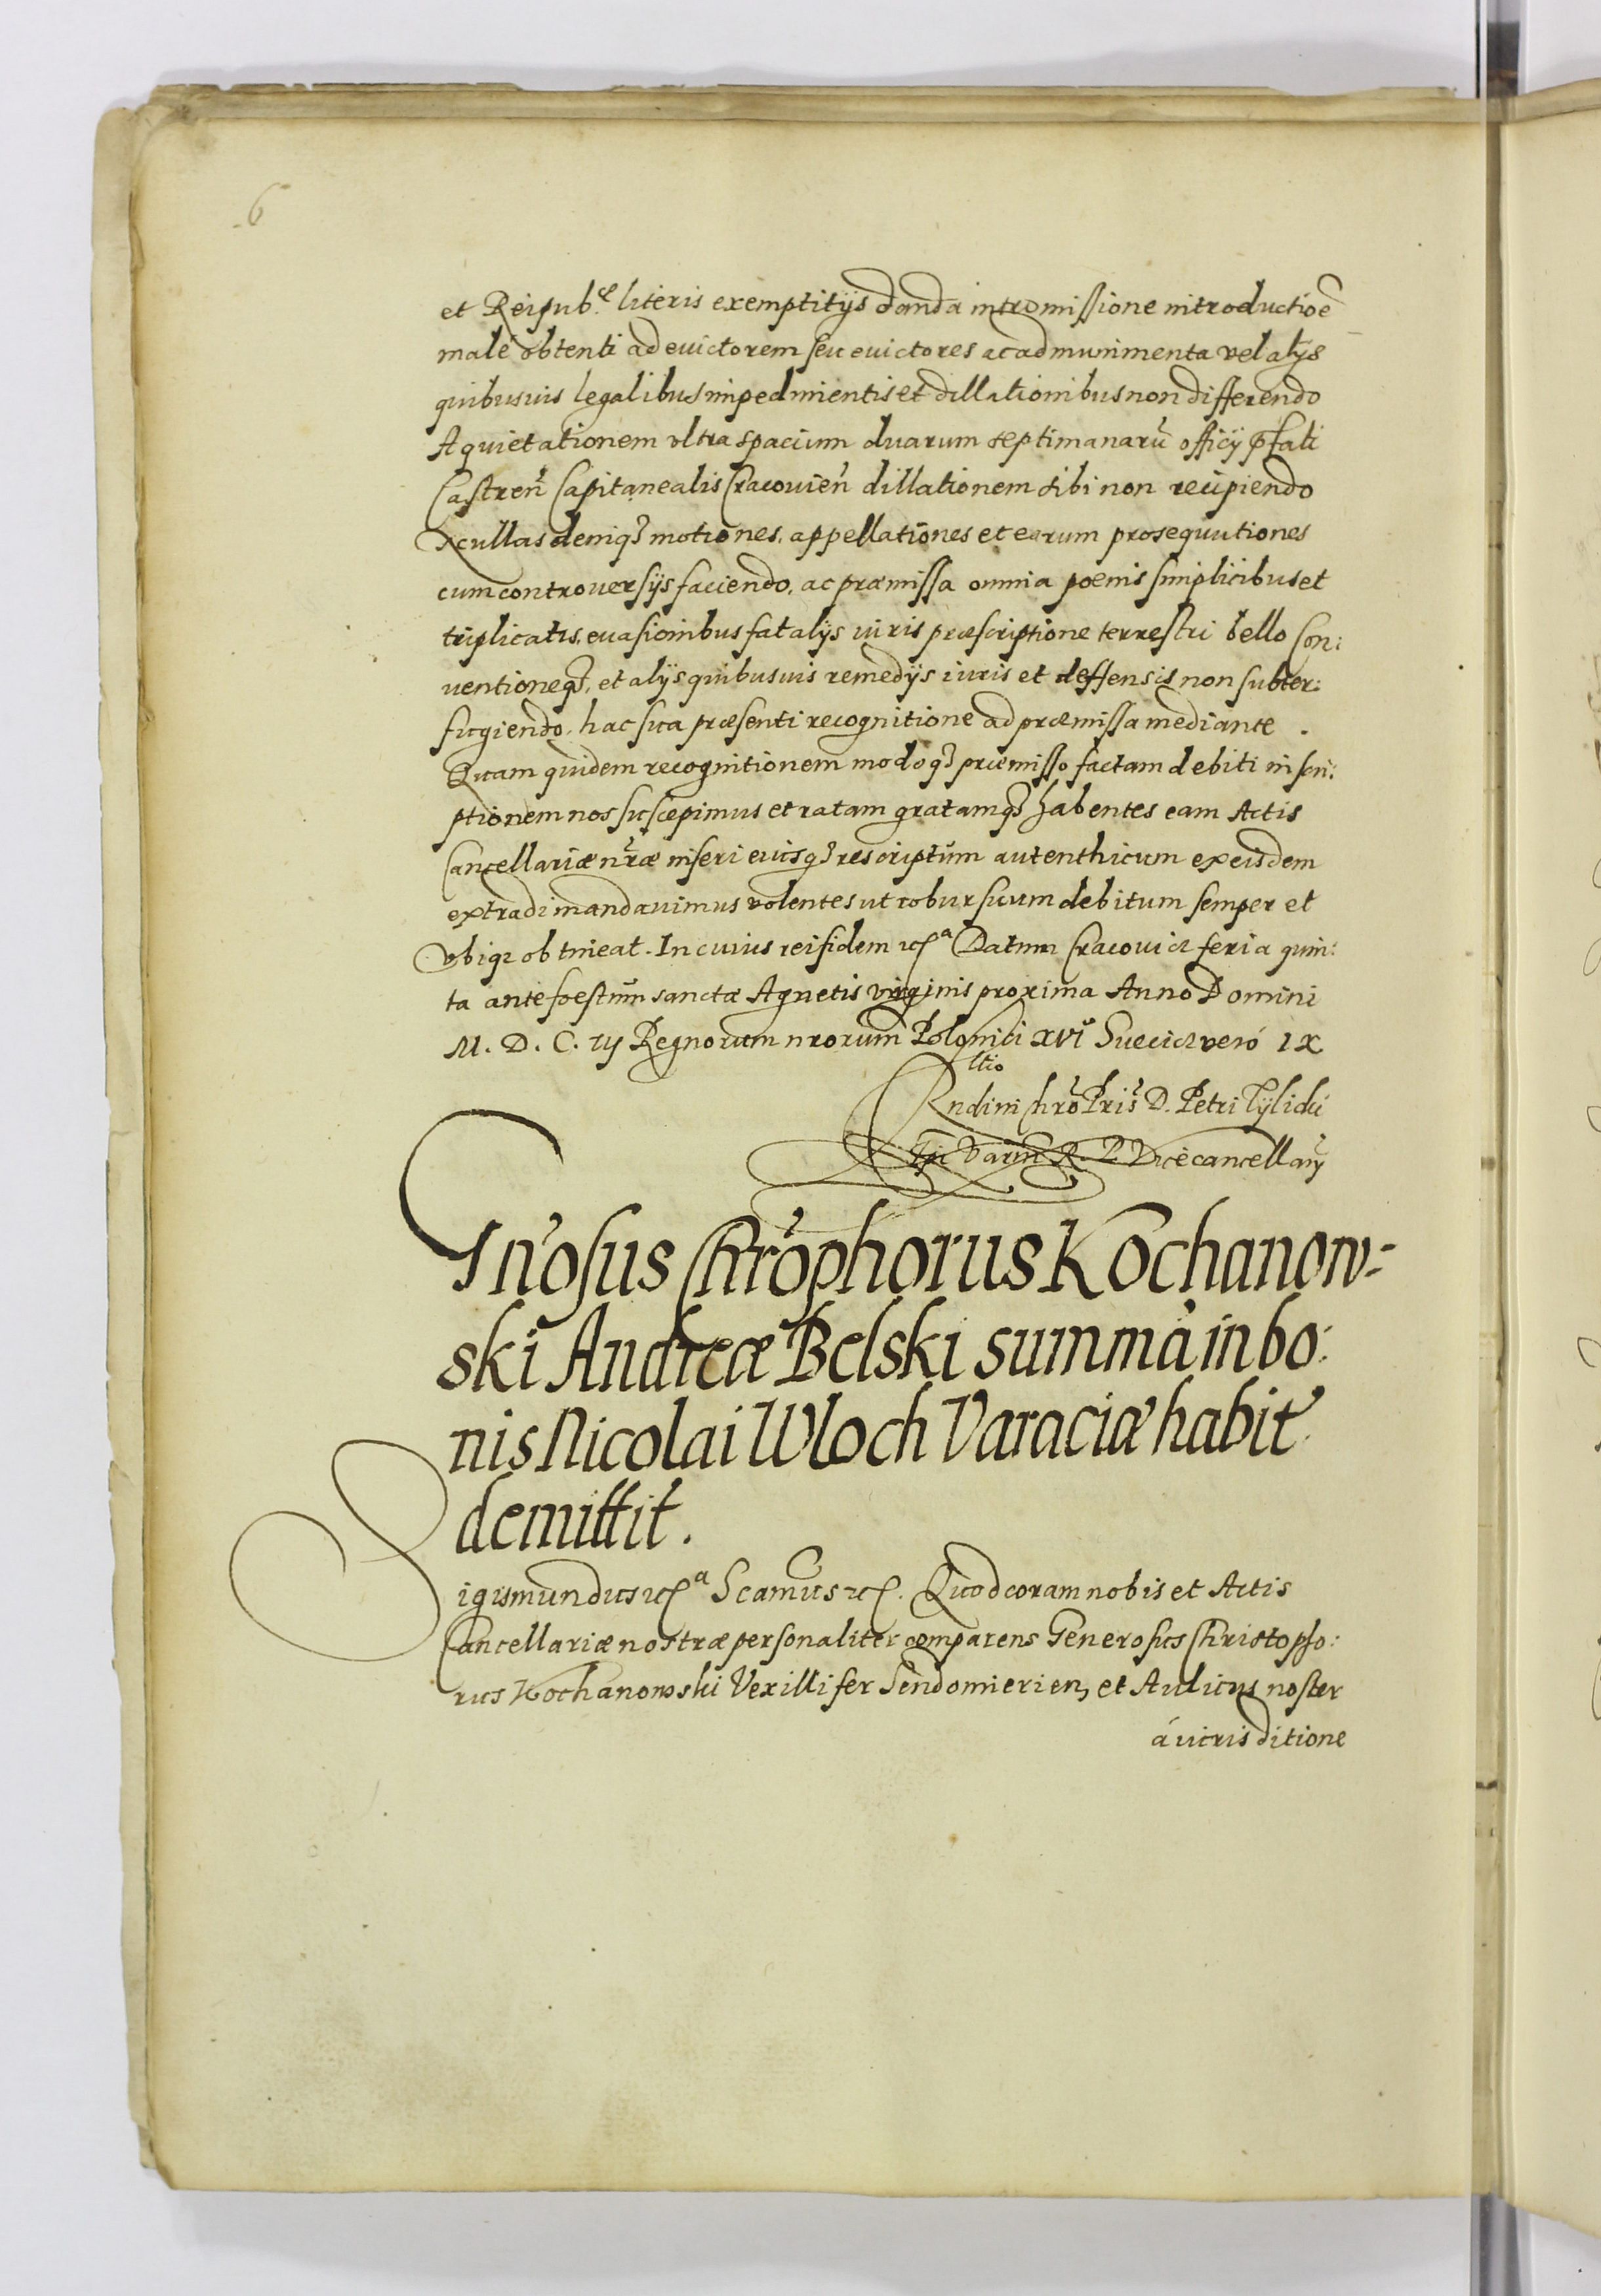 6
et Reipub.æ literis exemptitijs danda intromissione introductioē
malè obtenti ad euictorem seu euictores ac ad munimenta vel alijs
quibusuis legalibus impedimentis et dillationibus non differendo
A quietationem vltra spacium duarum septimanarũ officij p̄fati
Castreñ Capitanealis Cracouieñ dillationem sibi non recipiendo
Necullas deniq3 motiones, appellationes et earum prosequutiones
cum controuersijs faciendo, ac præmissa omnia poenis simplicibus et
triplicatis, euasionibus fatalijs iuris præscriptione terrestri bello Con:
uentioneq3, et alijs quibusuis remedijs iuris et deffensis non subter:
fugiendo, hac sua præsenti recognitione ad præmissa mediante.
Quam quidem recognitionem modoq3 præmisso factam debiti inscri:
ptionem nos suscepimus et ratam gratamq3 habentes eam Actis
Cancellariæ nr̃æ inseri eiusq3 rescriptum autenthicum ex eisdem
extradi mandauimus volentes ut robur suum debitum semper et
vbiq3 obtineat. In cuius rei fidem etc.a Datum Cracouiæ feria quin:
ta ante foestum sanctæ Agnetis virginis proxima Anno Domini
M. D. C. iij Regnorum nrorum Poloniæ XVI Sueciæ verò IX
Rltio
ndimi Chrõ Pris D. Petri Tylicki
Epi Varm R. P. Vicecancellarij
Gnosus Chrõphorus Kochanow-
ski Andreæ Belski summã in bo:
nis Nicolai Wloch Varaciæ habit
demittit.
Sigismundus etc.a Scamus etc. Quod coram nobis et Actis
Cancellariæ nostræ personaliter comparens Generosus Christopho:
rus Kochanowski Vexillifer Sendomierieñ, et Aulicus noster
á iurisditione